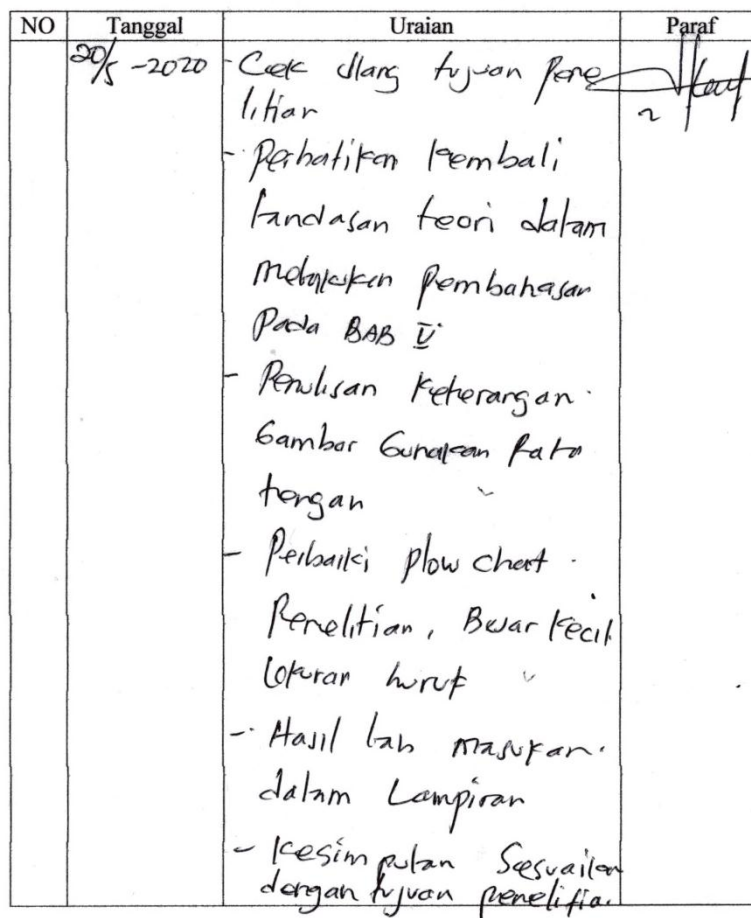 NO Tanggal Uraian Paraf
20/5 -2020 - Cek ulang tujuan pene
litian
- Perhatikan kembali
landasan teori dalam
melakukan pembahasan
Pada BAB V
- Penulisan keterangan
Gambar Gunakan Rata
tengah
- Perbaiki plow chart
Penelitian, Besar kecil
Ukuran huruf
- Hasil lab masukan
dalam Lampiran
- Kesimpulan Sesuaikan
dengan tujuan penelitian